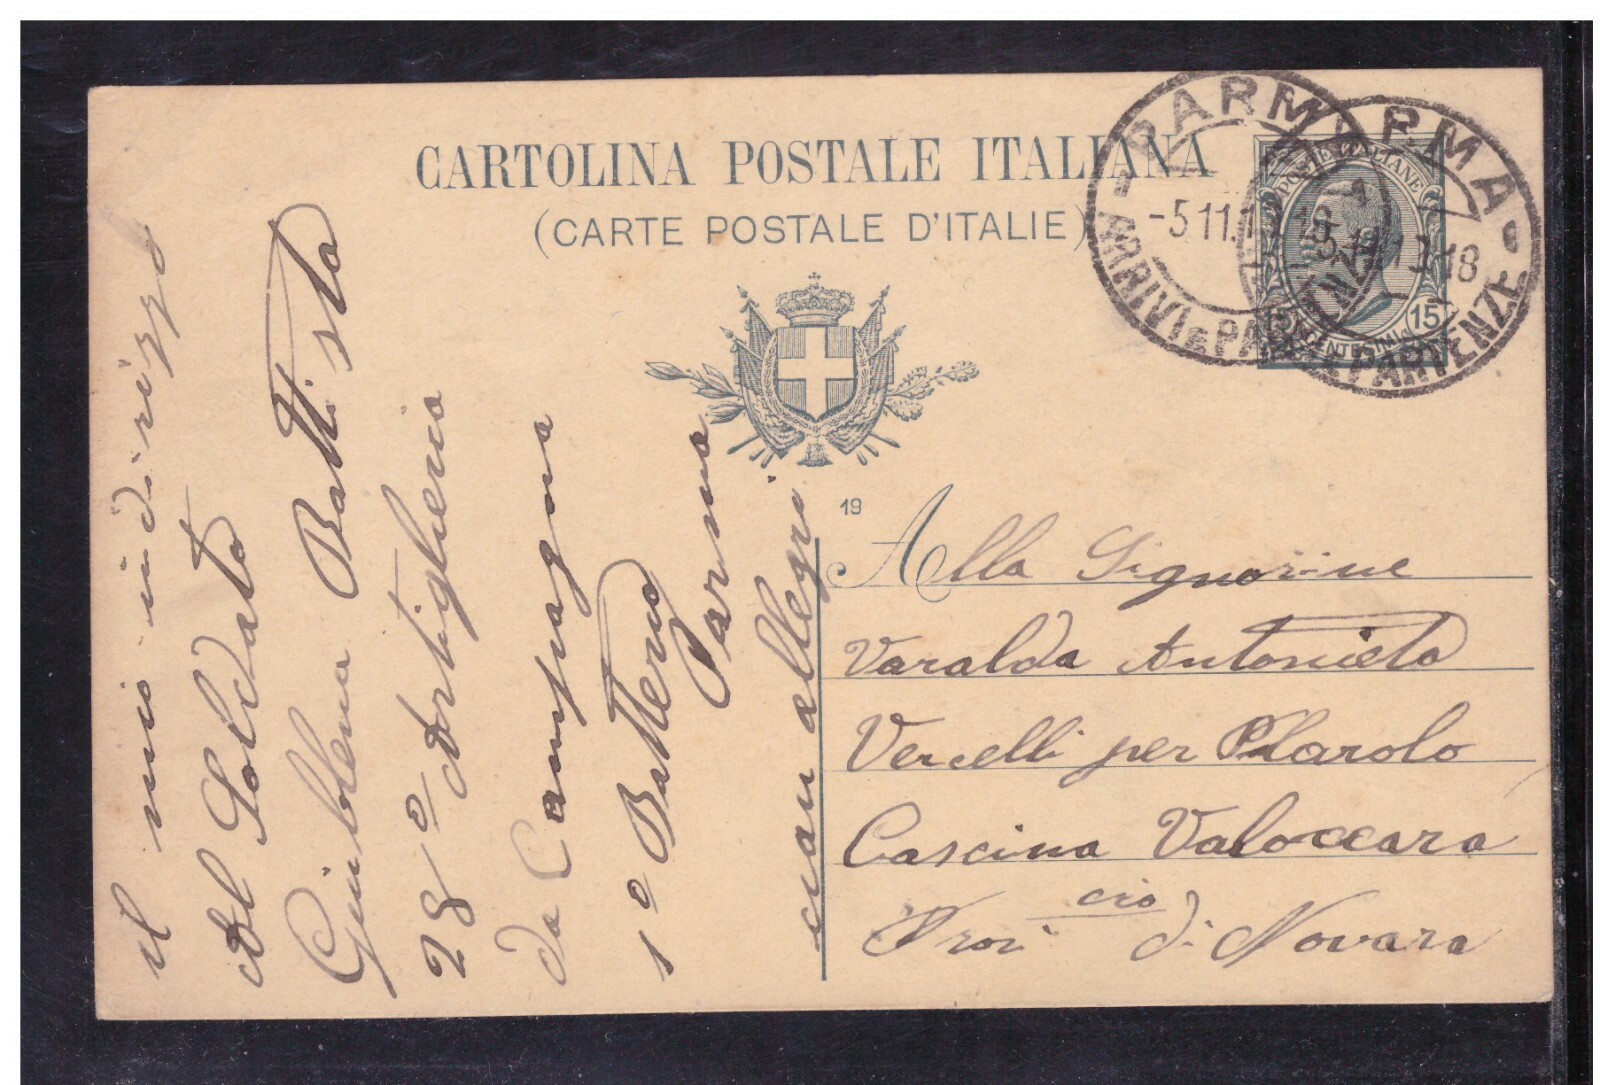 CARTOLINA POSTALE ITALIANA
(CARTE POSTALE D'ITALIE)
PARMA
-5.11.1
ARRIVI E PARTENZE
PARMA
18
ARRIVI E PARTENZE
POSTE ITALIANE
15 CENTESIMI 15
19
Alla Signorine
Varalda Antonieta
Vercelli per Larolo
Cascina
Provi cia di Novara
il mio indirizzo
Al Soldato
Battista
28° Artiglieria
Da Campagna
1° Batteria
Parma
ciau allegri